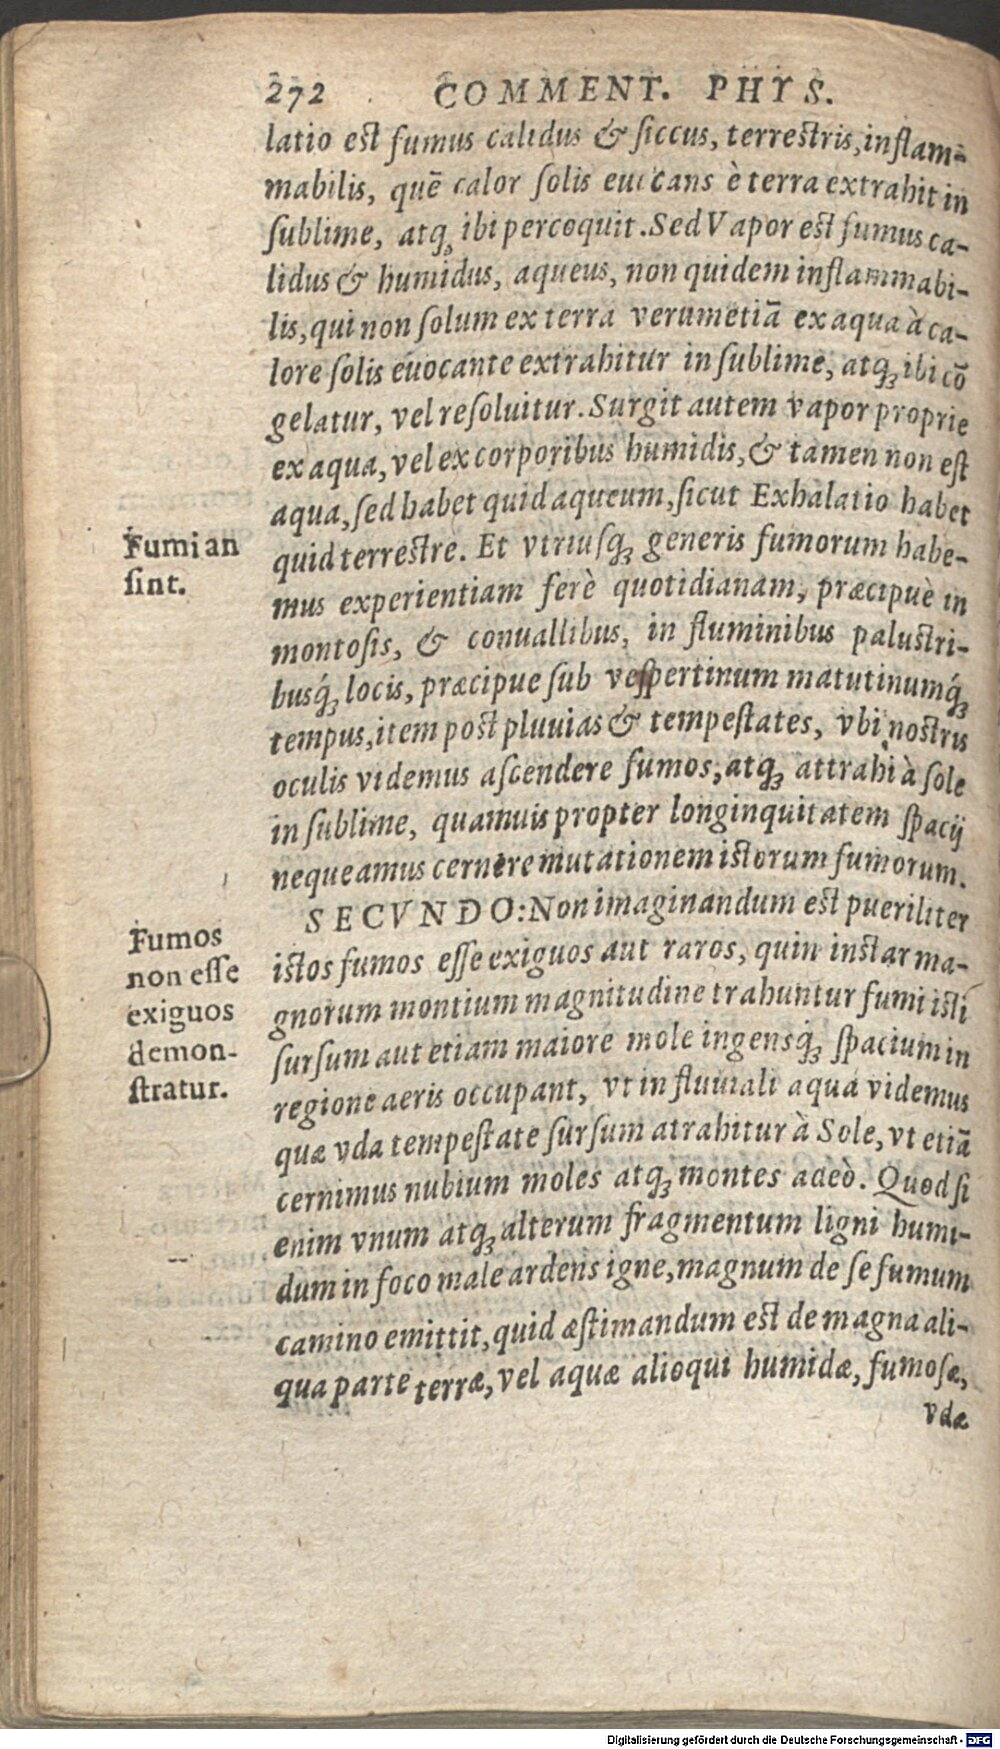 272 COMMENT. PHYS.
latio est fumus calidus & siccus, terrestris, inflam-
mabilis, quẽ calor solis euocans è terra extrahit in
sublime, atq; ibi percoquit. Sed Vapor est fumus ca-
lidus & humidus, aqueus, non quidem inflammabi-
lis, qui non solum ex terra verumetiã ex aqua à ca-
lore solis euocante extrahitur in sublime, atq; ibi cõ
gelatur, vel resoluitur. Surgit autem vapor proprie
ex aqua, vel ex corporibus humidis, & tamen non est
aqua, sed habet quid aqueum, sicut Exhalatio habet
Fumi an
sint.
quid terrestre. Et vtriusq; generis fumorum habe-
mus experientiam ferè quotidianam, præcipuè in
montosis, & conuallibus, in fluminibus palustri-
busq́; locis, præcipue sub vespertinum matutinumq́;
tempus, item post pluuias & tempestates, vbi nostris
oculis videmus ascendere fumos, atq; attrahi à sole
in sublime, quamuis propter longinquitatem spacij
nequeamus cernere mutationem istorum fumorum.
SECVNDO: Non imaginandum est pueriliter
Fumos
non esse
exiguos
demon-
stratur.
istos fumos esse exiguos aut raros, quin instar ma-
gnorum montium magnitudine trahuntur fumi isti
sursum aut etiam maiore mole ingensq́; spacium in
regione aeris occupant, vt in fluuiali aqua videmus
quæ vda tempestate sursum atrahitur à Sole, vt etiã
cernimus nubium moles atq; montes adeò. Quod si
enim vnum atq; alterum fragmentum ligni humi-
dum in foco male ardens igne, magnum de se fumum
camino emittit, quid æstimandum est de magna ali-
qua parte terræ, vel aquæ alioqui humidæ, fumosæ,
vdæ
Digitalisierung gefördert durch die Deutsche Forschungsgemeinschaft - DFG